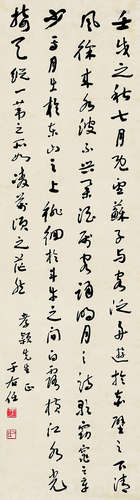 壬戌之秋七月既望蘇子與客泛舟遊於赤壁之下清
風徐來水波不興舉酒屬客誦明月之詩歌窈窕之章
少焉月出於東山之上徘徊於斗牛之間白露橫江水光
接天縱一葦之所如凌萬頃之茫然
先生正
于右任